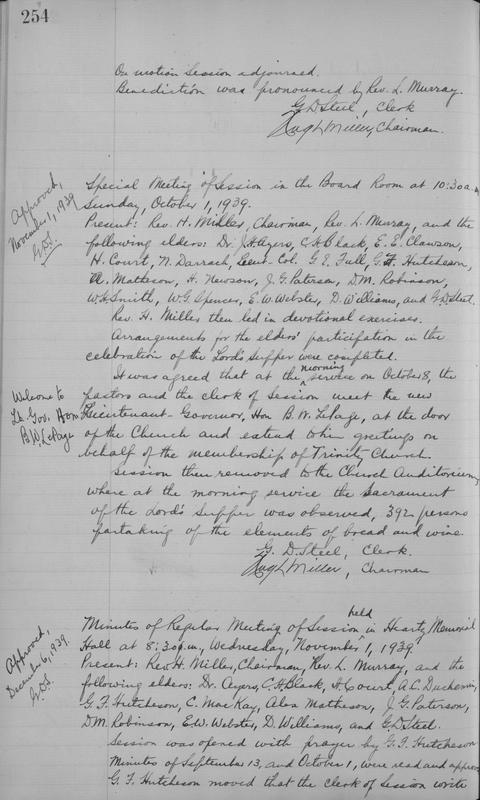 254
On motion Session adjourned.
Benediction was pronounced by Rev. L. Murray.
G. D. Steel, Clerk
Hugh Miller, Chairman.
Approved,
November 1, 1939
G.D.S.
Special Meeting of Session in the Board Room at 10:30 a.m.
Sunday, October 1, 1939.
Present: Rev. H. Miller, Chairman, Rev. L. Murray, and the
following elders: Dr. J. H. Ayers, C. H. Black, E. E. Clawson,
H. Court, N. Darrach, Lieut-Col. G. E. Full, G. F. Hutcheson,
A. Matheson, H. Newson, J. G. Paterson, D. M. Robinson,
W. H. Smith, W. G. Spence, E. W. Webster, D. Williams, and G. D. Steel.
Rev. H. Miller then led in devotional exercises.
Arrangements for the elders' participation in the
celebration of the Lord's Supper were completed.
It was agreed that at the morning service on October 8, the
Welcome to
Lt. Gov. Hon.
B. W. LePage
pastors and the clerk of Session meet the new
Lieutenant-Governor, Hon B. W. LePage, at the door
of the Church and extend to him greetings on
behalf of the membership of Trinity Church.
Session then removed to the Church Auditorium,
where at the morning service the Sacrament
of the Lord's Supper was observed, 392 persons
partaking of the elements of bread and wine.
G. D. Steel, Clerk.
Hugh Miller, Chairman
Approved,
December 6, 1939.
G.D.S.
Minutes of Regular Meeting of Session held in Heartz Memorial
Hall at 8:30 p.m., Wednesday, November 1, 1939
Present: Rev. H. Miller, Chairman, Rev. L. Murray, and the
following elders: Dr. Ayers, C. H. Black, H. Court, A. C. Duchemin,
G. F. Hutcheson, C. MacKay, Alan Matheson, J. G. Paterson,
D. M. Robinson, E. W. Webster, D. Williams, and G. D. Steel.
Session was opened with prayer by G. F. Hutcheson
Minutes of September 13, and October 1, were read and approved
G. F. Hutcheson moved that the clerk of Session write